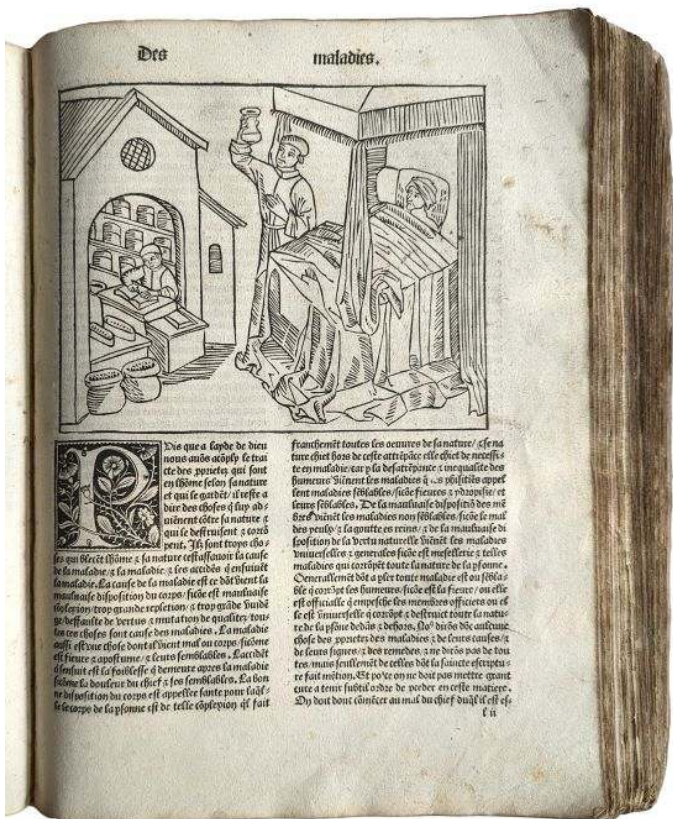 Des maladies.
Puis que a layde de dieu
nous auõs acõply le trai
cte des ꝓprietez qui sont
en lhõme selon sa nature
et qui le gardẽt/ il reste a
dire des choses q̃ luy ad-
uiẽnent cõtre sa nature ⁊
qui le destruisent ⁊ corrõ
pent. Jl̃z sont troys cho-
ses qui blecẽt lhõme ⁊ sa nature cestassauoir la cause
de la maladie/⁊ la maladie ⁊ les accidẽs q̃ ensuiuẽt
la maladie. La cause de la maladie est ce dõt viẽnt la
mauluaise disposition du corps/ sicõe est mauluaise
cõplexion/ trop grande repletion/⁊ trop grãde vuidã
ge/ deffaulte de vertus ⁊ mutation de qualitez toutes
ces choses sont cause des maladies. La maladie
aussi est vne chose dont il viẽnt mal ou corps/ sicõme
est fieure ⁊ apostume/⁊ leurs semblables. Laccidẽt
q̃ ensuit est la foiblesse q̃ demeure apres la maladie
sicõme la douleur du chief ⁊ ses semblables. La bon
ne disposition du corps est appellee sante pour laq̃l-
le le corps de la ꝑsonne est de telle cõplexion q̃l fait
franchemẽt toutes les oeuures de sa nature/⁊ se na
ture chiet hors de ceste attrẽpãce elle chiet de necessi
te en maladie/ car ꝑ la desatrẽpance ⁊ inequalite des
humeurs viẽnent les maladies q̃ les phisiciẽs appel
lent maladies sẽblables/ sicõe fieures ⁊ ydropisie/ et
leurs sẽblables. De la mauluaise dispositiõ des mẽ
bres viẽnẽt les maladies non sẽblables/ sicõe le mal
des yeulx ⁊ la goutte es reins/⁊ de la mauuaise di
sposition de la vertu naturelle viẽnẽt les maladies
vniuerselles ⁊ generales sicõe est mesellerie ⁊ telles
maladies qui corrõpẽt toute la nature de la ꝑsonne.
Generallemẽt dõt a ꝑler toute maladie est ou sẽbla-
ble q̃ corrõpt les humeurs/ sicõe est la fieure/ ou elle
est officialle q̃ empesche les membres officiers ou el
le est vniuerselle q̃ corrõpt ⁊ destruict toute la natu-
re de la ꝑsõne dedãs ⁊ dehors. No⁹ dirõs dõc aulcune
chose des ꝓprietez des maladies ⁊ de leurs causes/⁊
de leurs signes/⁊ des remedes/⁊ ne dirõs pas de tou
tes/ mais seullemẽt de celles dõt la saincte escriptu-
re fait mẽtion. Et po²ce on ne doit pas mettre grant
cure a tenir subtil ordre de ꝓceder en ceste matiere.
On doit donc cõmẽcer au mal du chief duq̃l il est es-
l ii